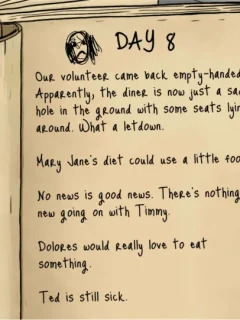 DAY 8
Our volunteer came back empty-handed
Apparently, the diner is now just a
hole in the ground with some seats
around. What a letdown.
Mary Jane's diet could use a little
No news is good news. There's nothing
new going on with Timmy.
Dolores would really love to eat
something.
Ted is still sick.